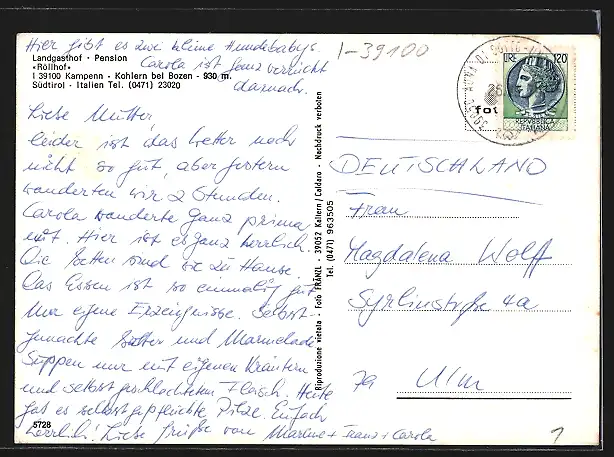 Hier gibt es zwei kleine Hundebabys.
Carola ist ganz verrückt
darnach.
Landgasthof · Pension
«Röllhof»
I 39100 Kampenn - Kohlern bei Bozen - 930 m.
Südtirol - Italien Tel. (0471) 23020
Liebe Mutter
leider ist das Wetter noch
nicht so gut, aber gestern
wanderten wir 2 Stunden.
Carola wanderte ganz prima
mit. Hier ist es ganz herrlich.
Die Betten sind wie zu Hause.
Das Essen ist so einmalig gut
Nur eigene Erzeugnisse. Selbst-
gemachte Butter und Marmelade
Suppen nur mit eigenen Kräutern
und selbstgeschlachteten Fleisch. Heute
gab es selbstgepflückte Pilze. Einfach
herrlich! Liebe Grüße von Martine + Franz + Carola
5728
Riproduzione vietata - Foto FRÄNZL - 39052 Kaltern/Caldaro - Nachdruck verboten
Tel. (0471) 963505
I-39100
LIRE 120
REPVBBLICA
ITALIANA
DEUTSCHLAND
Frau
Magdalena Wolff
Syrlinstraße 4a
79 Ulm
1